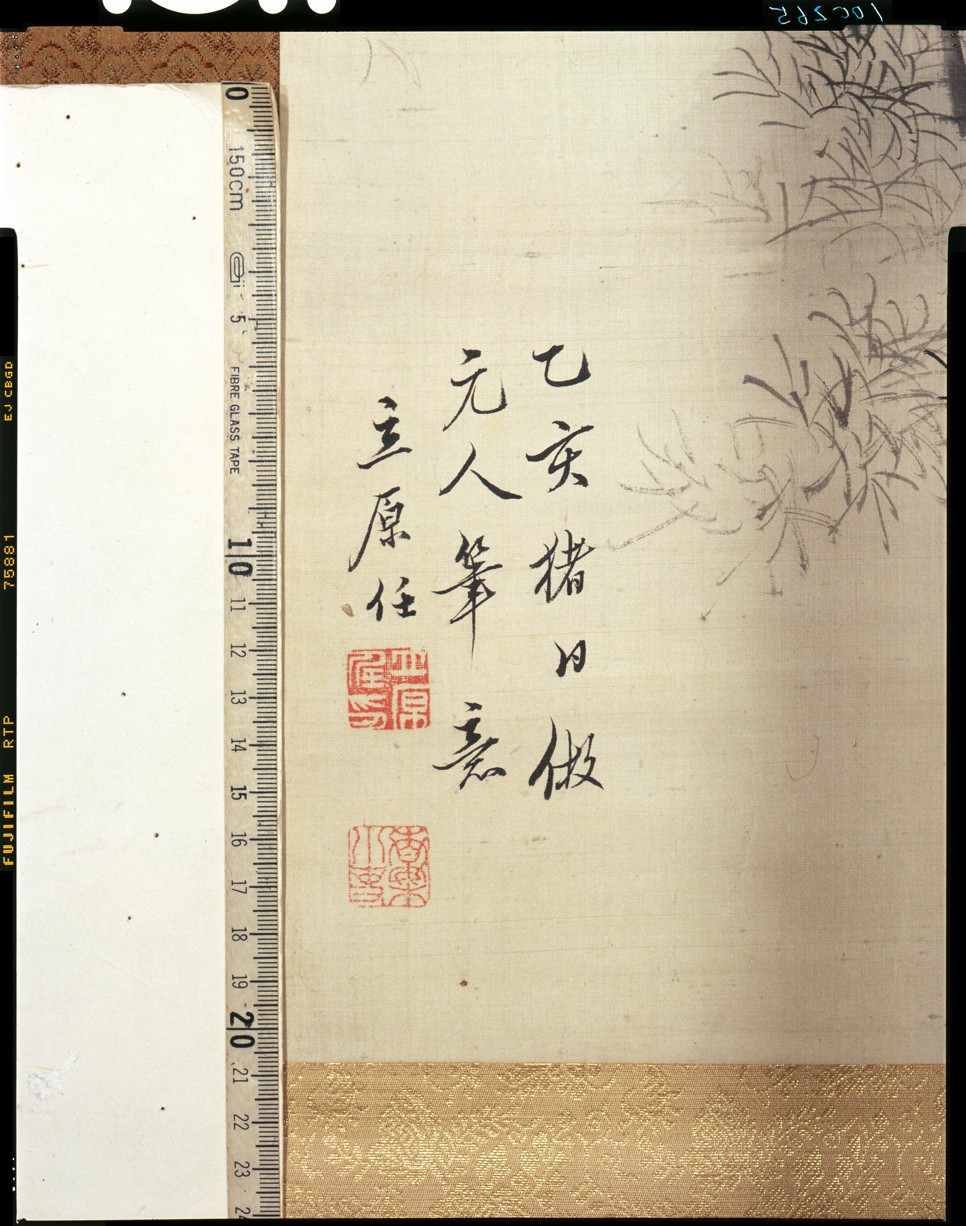 乙亥猪日倣
元人筆意
立原任
立原任印
東軒小書
0
150cm
5
FIBRE GLASS TAPE
10
11
12
13
14
15
16
17
18
19
20
21
22
23
24
FUJIFILM RTP 75881 EJ CBGD